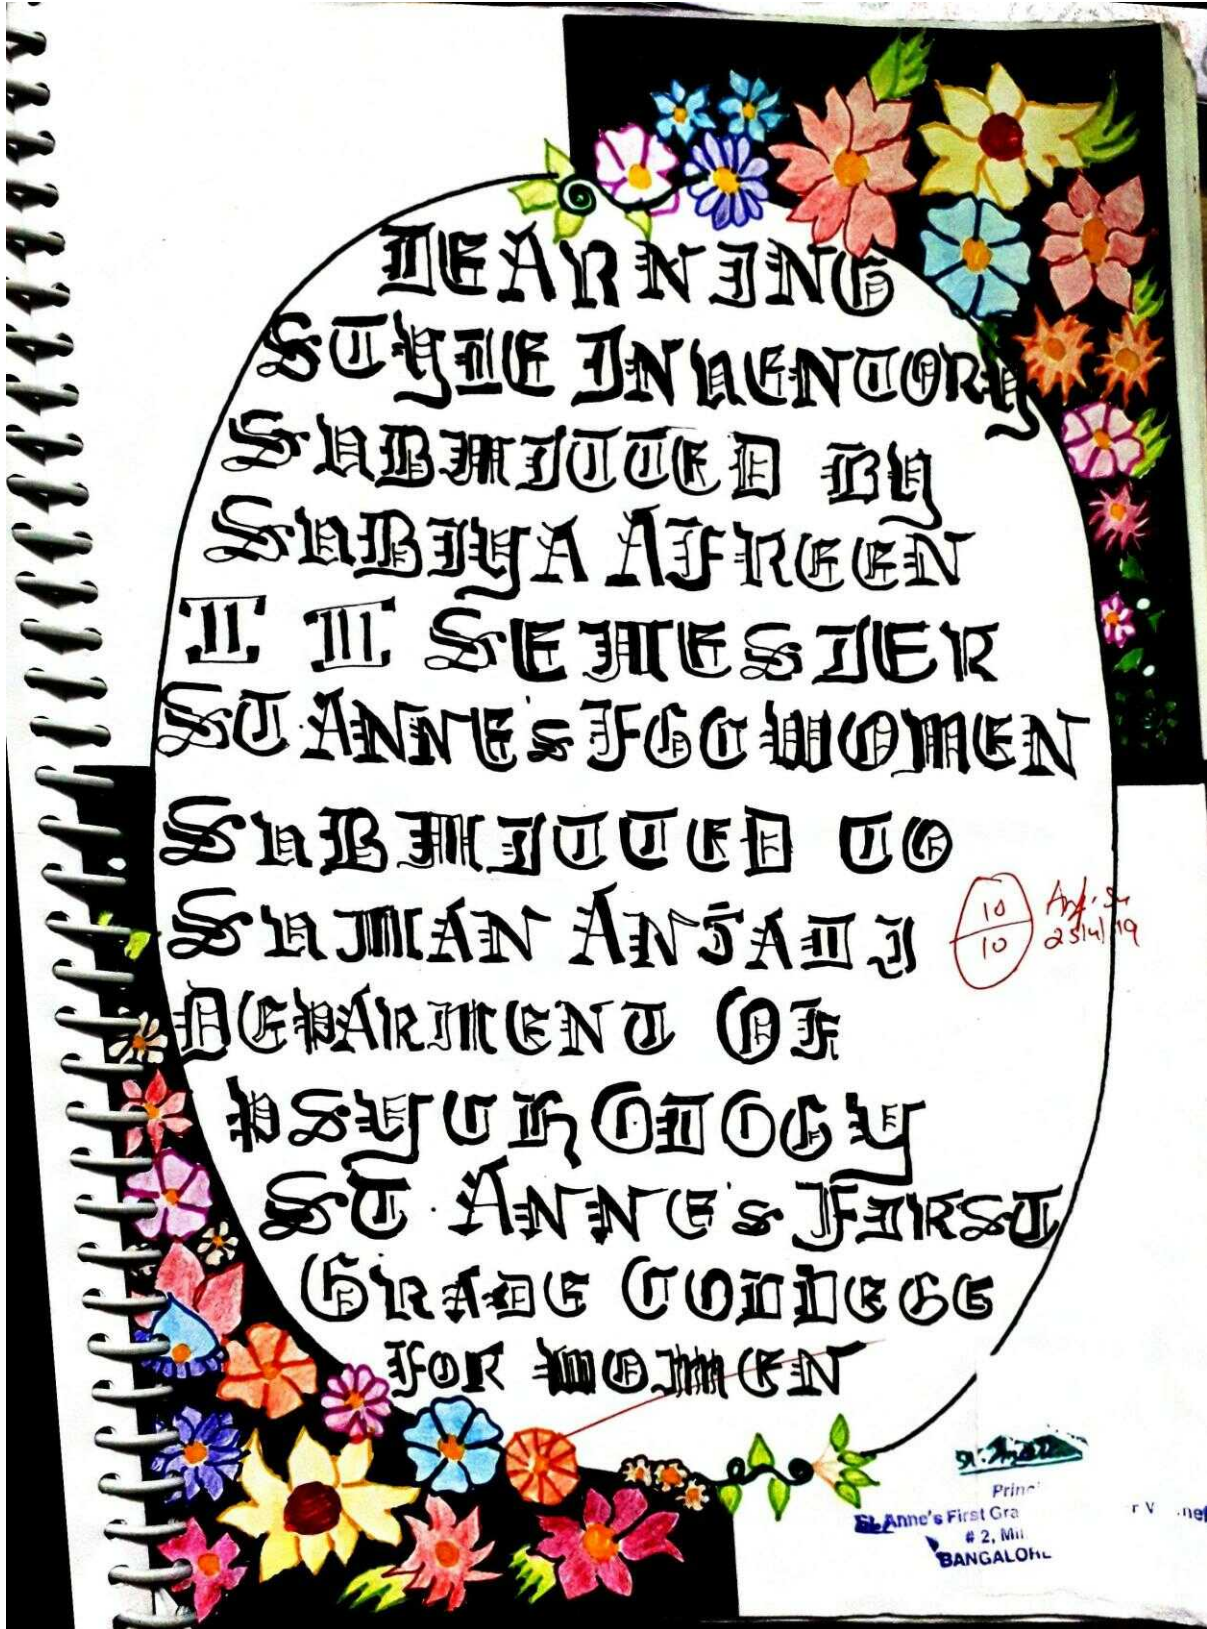 LEARNING
STYLE INVENTORY
SUBMITTED BY
SUBIYA AFREEN
II III SEMESTER
ST. ANNE'S FGC WOMEN
SUBMITTED TO
SUMAN ANSALI
10
10
DEPARMENT OF
PSYCHOLOGY
ST. ANNE'S FIRST
GRADE COLLEGE
FOR WOMEN
Princ
St. Anne's First Gra
# 2, Mil
BANGALORE